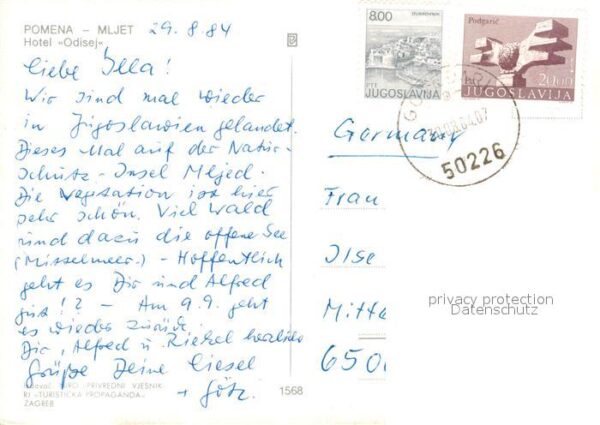 POMENA — MLJET 29.8.84
Hotel »Odisej«
Liebe Illa!
Wir sind mal wieder
in Jugoslawien gelandet.
Dieses Mal auf der Natur-
schutz-Insel Mljed.
Die Vegetation ist hier
sehr schön. Viel Wald
und dazu die offene See
(Mittelmeer.) - Hoffentlich
geht es Dir und Alfred
gut!? - Am 9.9. geht
es wieder zurück.
Dir, Alfred u. herzliche
Grüße Deine Liesel
+ Götz.
BIRO PRIVREDNI VJESNIK
RJ »TURISTIČKA PROPAGANDA«
ZAGREB
1568
8.00
DUBROVNIK
PTT
JUGOSLAVIJA
Podgarić
20.00
JUGOSLAVIJA
50226
Germany
Frau
Ilse
Mitte
650
privacy protection
Datenschutz